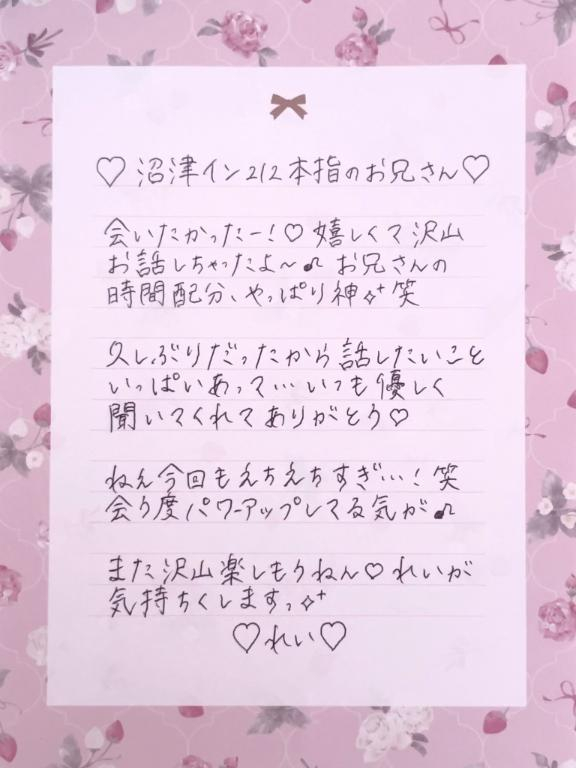 ♡沼津イン212本指のお兄さん♡
会いたかったー！♡嬉しくて沢山
お話しちゃったよ～♫お兄さんの
時間配分、やっぱり神✧⁺笑
久しぶりだったから話したいこと
いっぱいあって…いつも優しく
聞いてくれてありがとう♡
ねえ今回もえちえちすぎ…！笑
会う度パワーアップしてる気が♫
また沢山楽しもうねん♡れいが
気持ちくしますっ✧⁺
♡れい♡